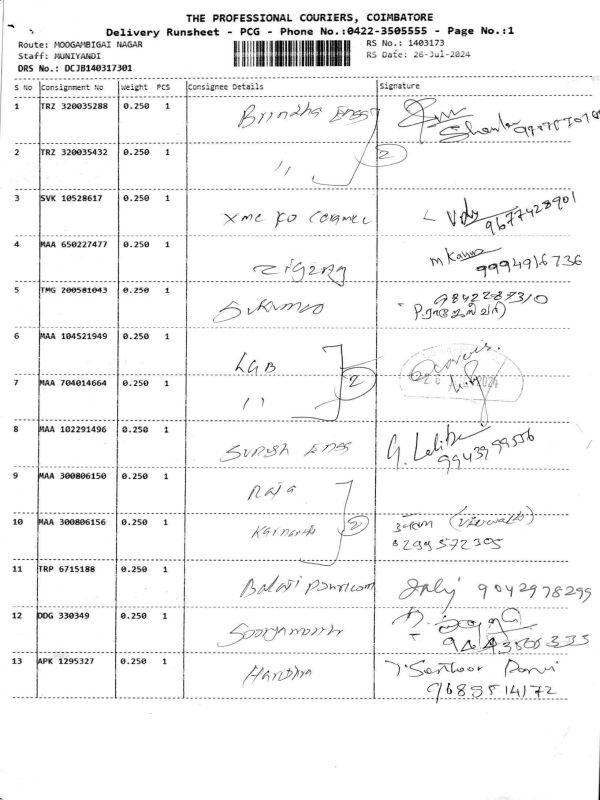 THE PROFESSIONAL COURIERS, COIMBATORE
Delivery Runsheet - PCG - Phone No.:0422-3505555 - Page No.:1
Route: MOOGAMBIGAI NAGAR RS No.: 1403173
Staff: MUNIYANDI RS Date: 26-Jul-2024
DRS No.: DCJB140317301
S No Consignment No Weight PCS Consignee Details Signature
1 TRZ 320035288 0.250 1 Brindha Engg
2 TRZ 320035432 0.250 1 " 2
3 SVK 10528617 0.250 1 9677428901
4 MAA 650227477 0.250 1 Zigzag 9994916736
5 TMG 200581043 0.250 1 9842287310
6 MAA 104521949 0.250 1 LGB
7 MAA 704014664 0.250 1 " 2
8 MAA 102291496 0.250 1 Suresh Engg G. Lalitha 9943999556
9 MAA 300806150 0.250 1 Raja
10 MAA 300806156 0.250 1 2 8299572305
11 TRP 6715188 0.250 1 Balaji 9042978299
12 DDG 330349 0.250 1
13 APK 1295327 0.250 1 9685514172